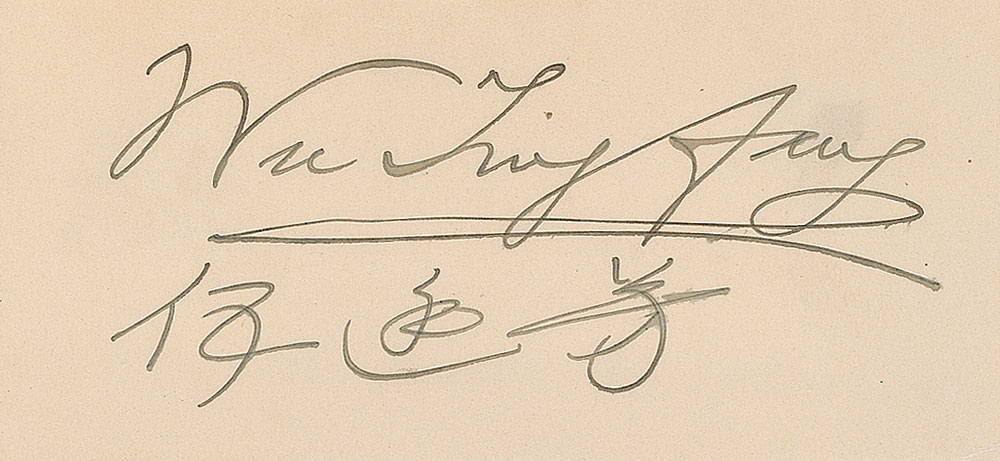 Wu Ting Fang
伍廷芳